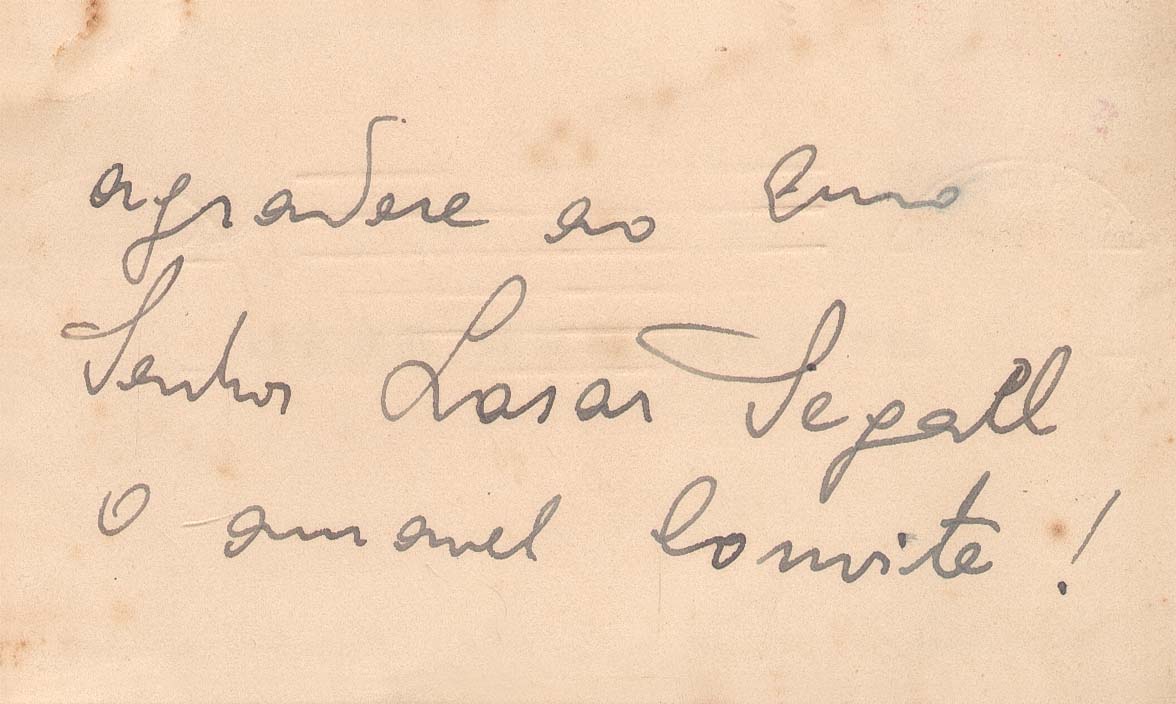 agradece ao Exmo
Senhor Lasar Segall
o amavel convite!